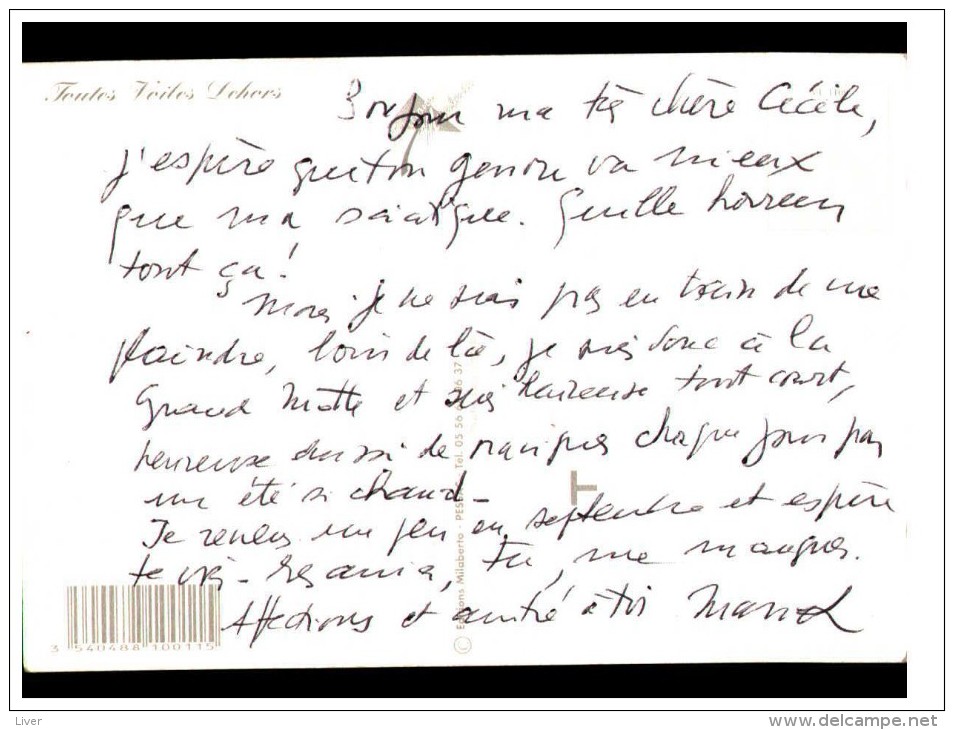 Toutes Voiles Dehors
Bonjour ma très chère Cécile,
j'espère que ton genou va mieux
que ma sciatique. Quelle horreur
tout ça!
Mais je ne suis pas en train de me
plaindre, loin de là, je suis donc à la
Grande Motte et suis heureuse tout court,
heureuse aussi de naviguer chaque jour par
un été si chaud -
Je reviens un peu en septembre et espère
te voir - tu me manques.
Affections et amitié à toi
© Editions Milaberto - PESSAC - Tel. 05 56 36 37
3 540488 100115
Liver
www.delcampe.net